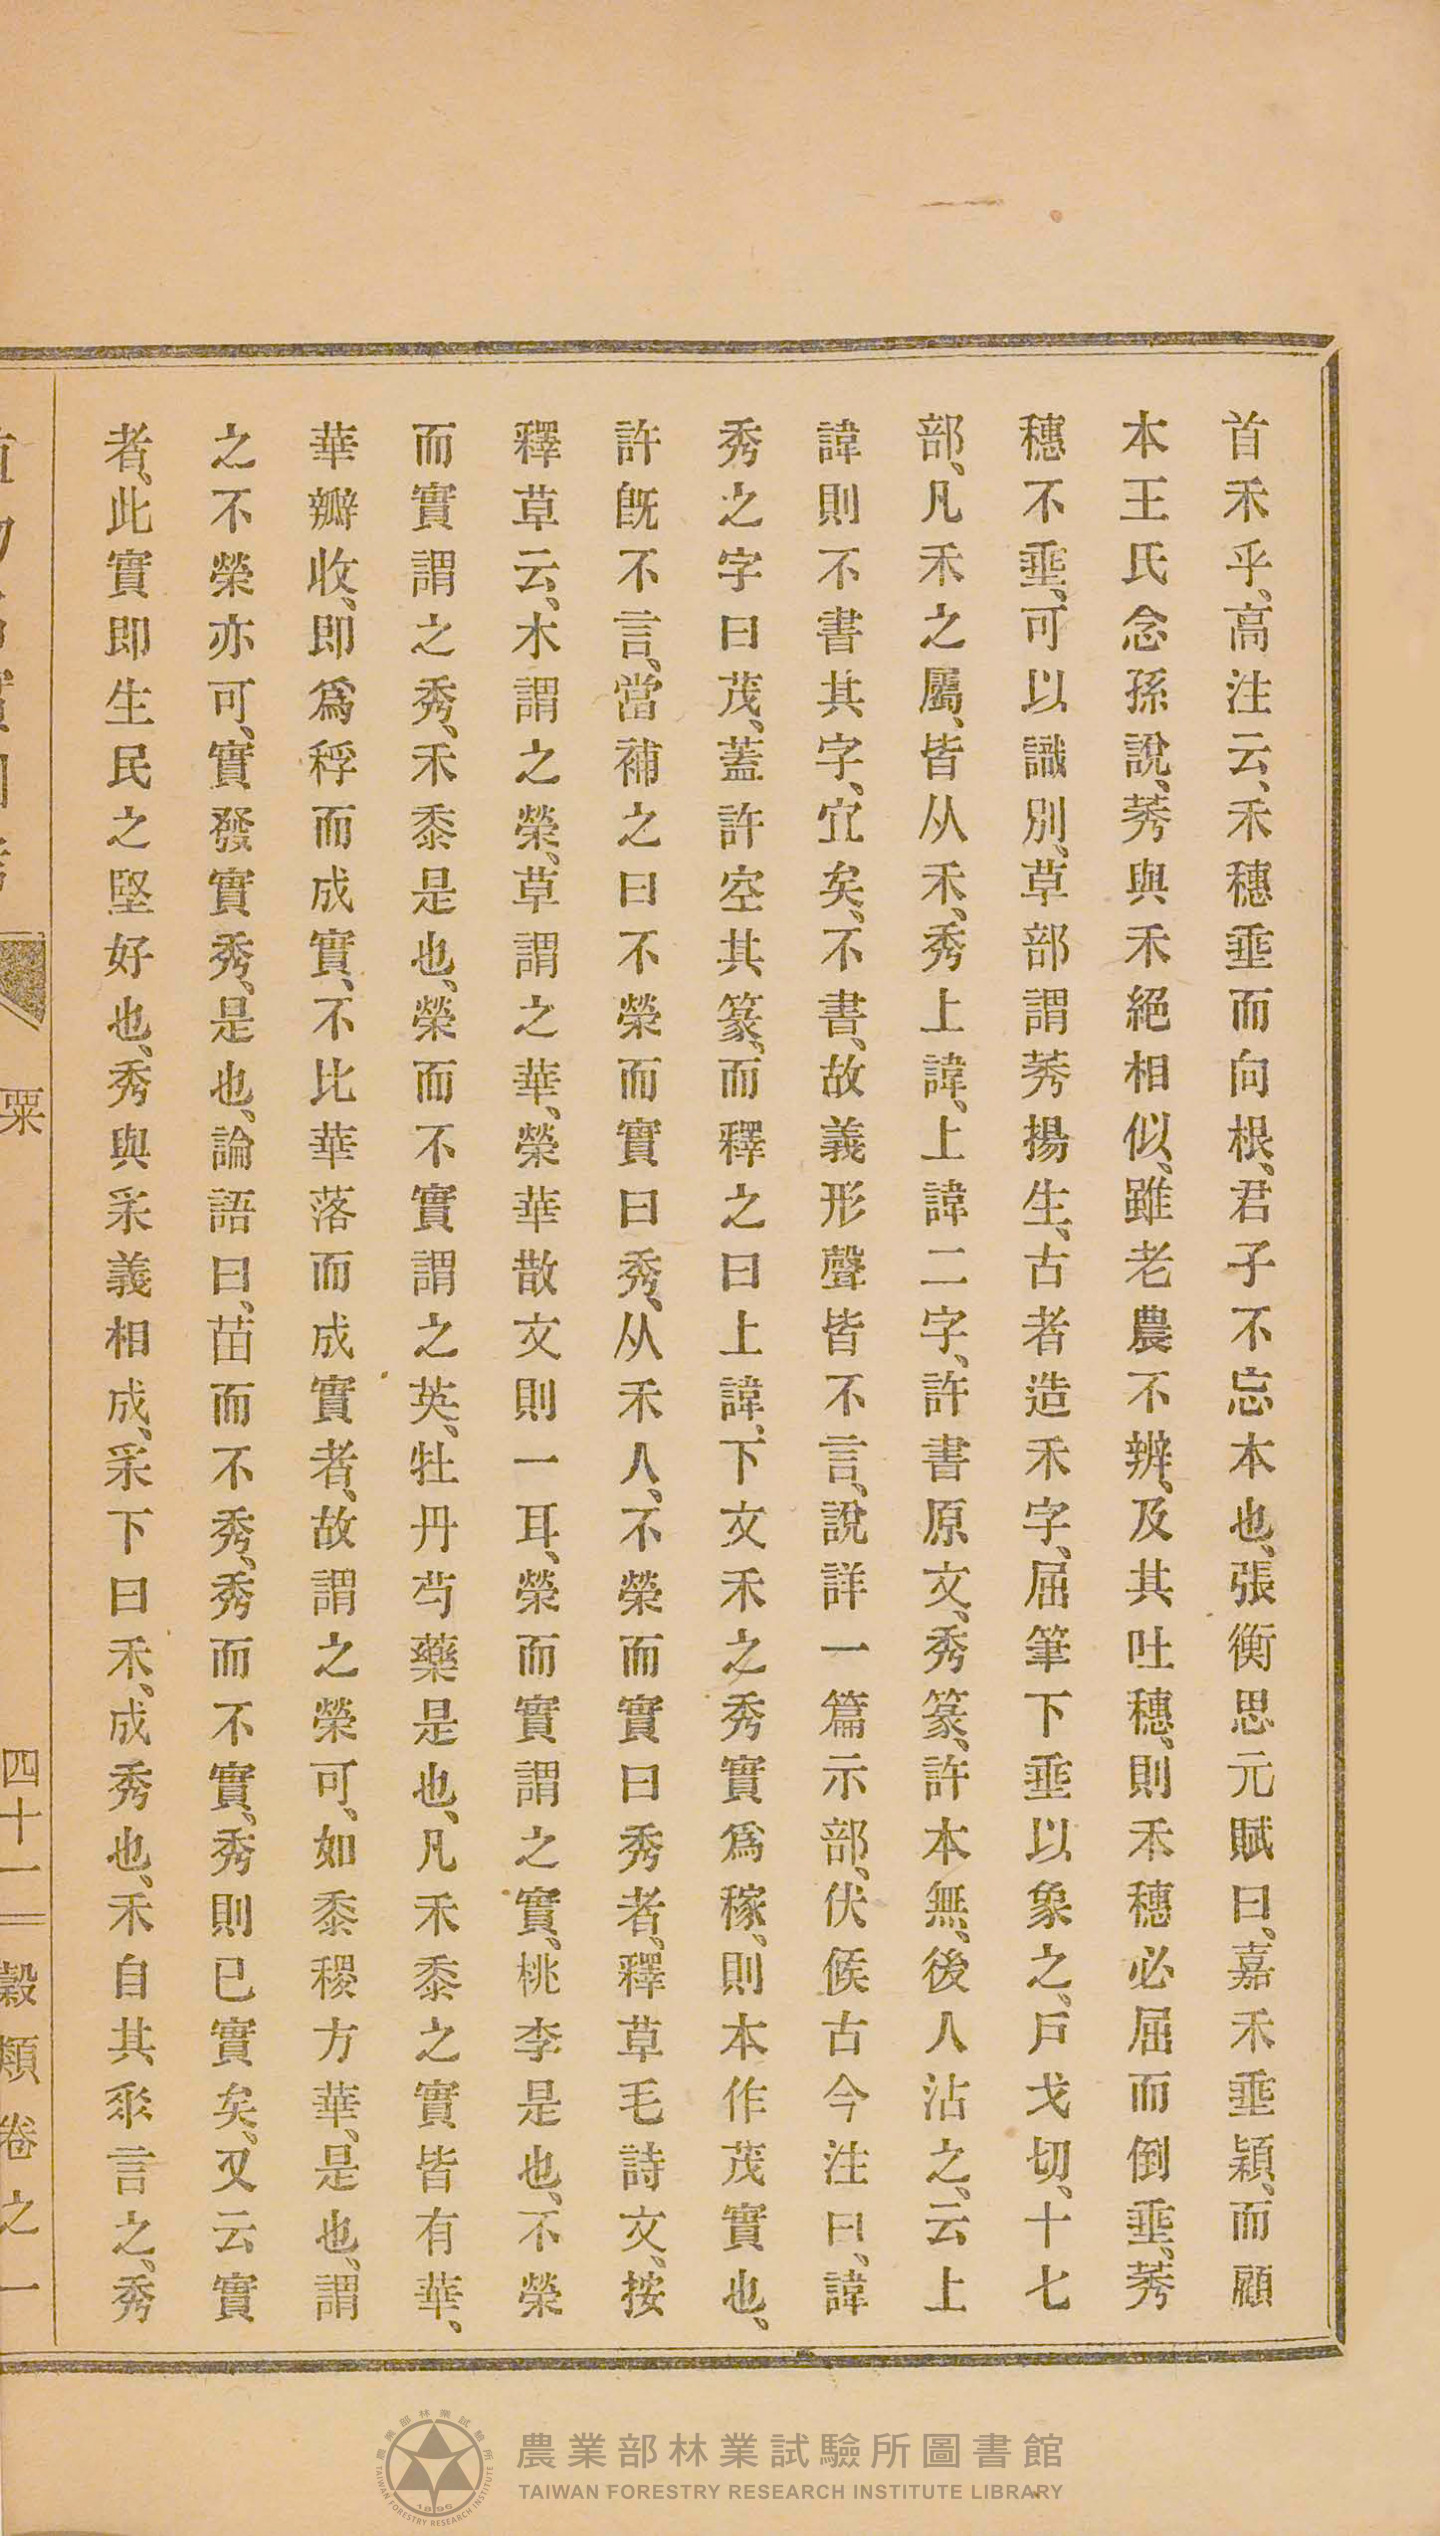 首禾乎、高注云、禾穗垂而向根、君子不忘本也、張衡思元賦曰、嘉禾垂穎、而顧
本王氏念孫說、莠與禾絕相似、雖老農不辨、及其吐穗、則禾穗必屈而倒垂、莠
穗不垂、可以識別、草部謂莠揚生、古者造禾字、屈筆下垂以象之、戶戈切、十七
部、凡禾之屬、皆从禾、秀上諱、上諱二字、許書原文、秀篆、許本無、後人沾之、云上
諱則不書其字、宜矣、不書、故義形聲皆不言、說詳一篇示部、伏侯古今注曰、諱
秀之字曰茂、蓋許空其篆、而釋之曰上諱、下文禾之秀實爲稼、則本作茂實也、
許旣不言、當補之曰不榮而實曰秀、从禾人、不榮而實曰秀者、釋草毛詩文、按
釋草云、木謂之榮、草謂之華、榮華散文則一耳、榮而實謂之實、桃李是也、不榮
而實謂之秀、禾黍是也、榮而不實謂之英、牡丹芍藥是也、凡禾黍之實皆有華、
華瓣收、即爲稃而成實、不比華落而成實者、故謂之榮可、如黍稷方華、是也、謂
之不榮亦可、實發實秀、是也、論語曰、苗而不秀、秀而不實、秀則已實矣、又云實
者、此實即生民之堅好也、秀與采義相成、采下曰禾、成秀也、禾自其𠂹言之、秀
粟
四十一
穀類卷之一
農業部林業試驗所圖書館
TAIWAN FORESTRY RESEARCH INSTITUTE LIBRARY